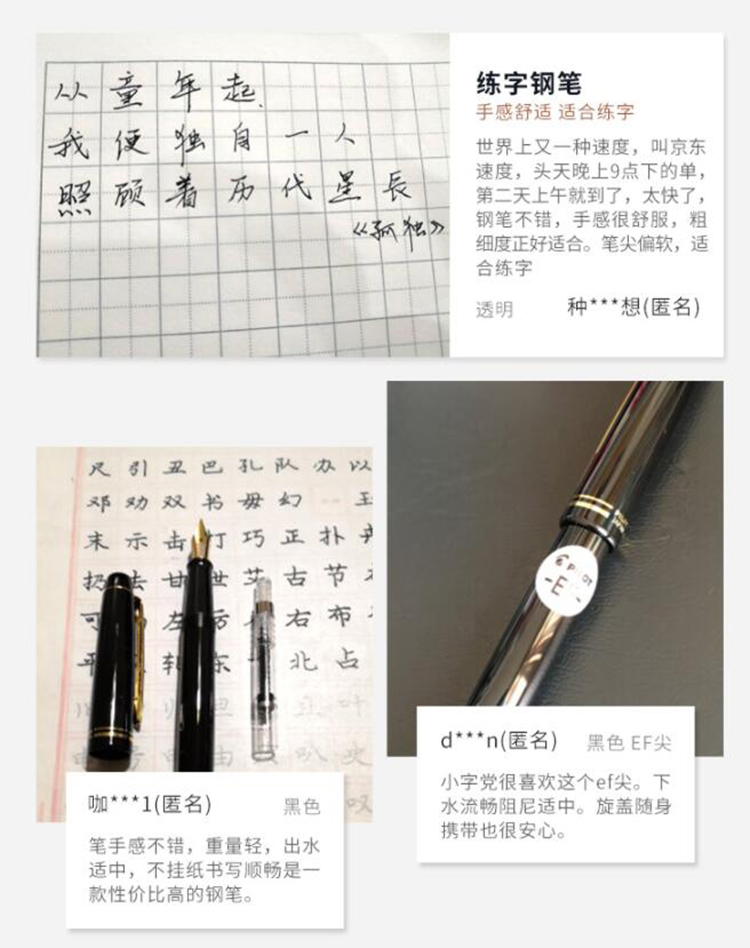 从童年起,
我便独自一人
照顾着历代星長
《孤独》
练字钢笔
手感舒适 适合练字
世界上又一种速度，叫京东
速度，头天晚上9点下的单，
第二天上午就到了，太快了，
钢笔不错，手感很舒服，粗
细度正好适合。笔尖偏软，适
合练字
透明
种***想(匿名)
尺引丑巴孔队办以
邓劝双书毋幻
末示击打巧正扑
扔去甘世艾古节
可 左厉 右布
平 轧东 北占
PILOT
d***n(匿名)
黑色 EF尖
小字党很喜欢这个ef尖。下
水流畅阻尼适中。旋盖随身
携带也很安心。
咖***1(匿名)
黑色
笔手感不错，重量轻，出水
适中，不挂纸书写顺畅是一
款性价比高的钢笔。